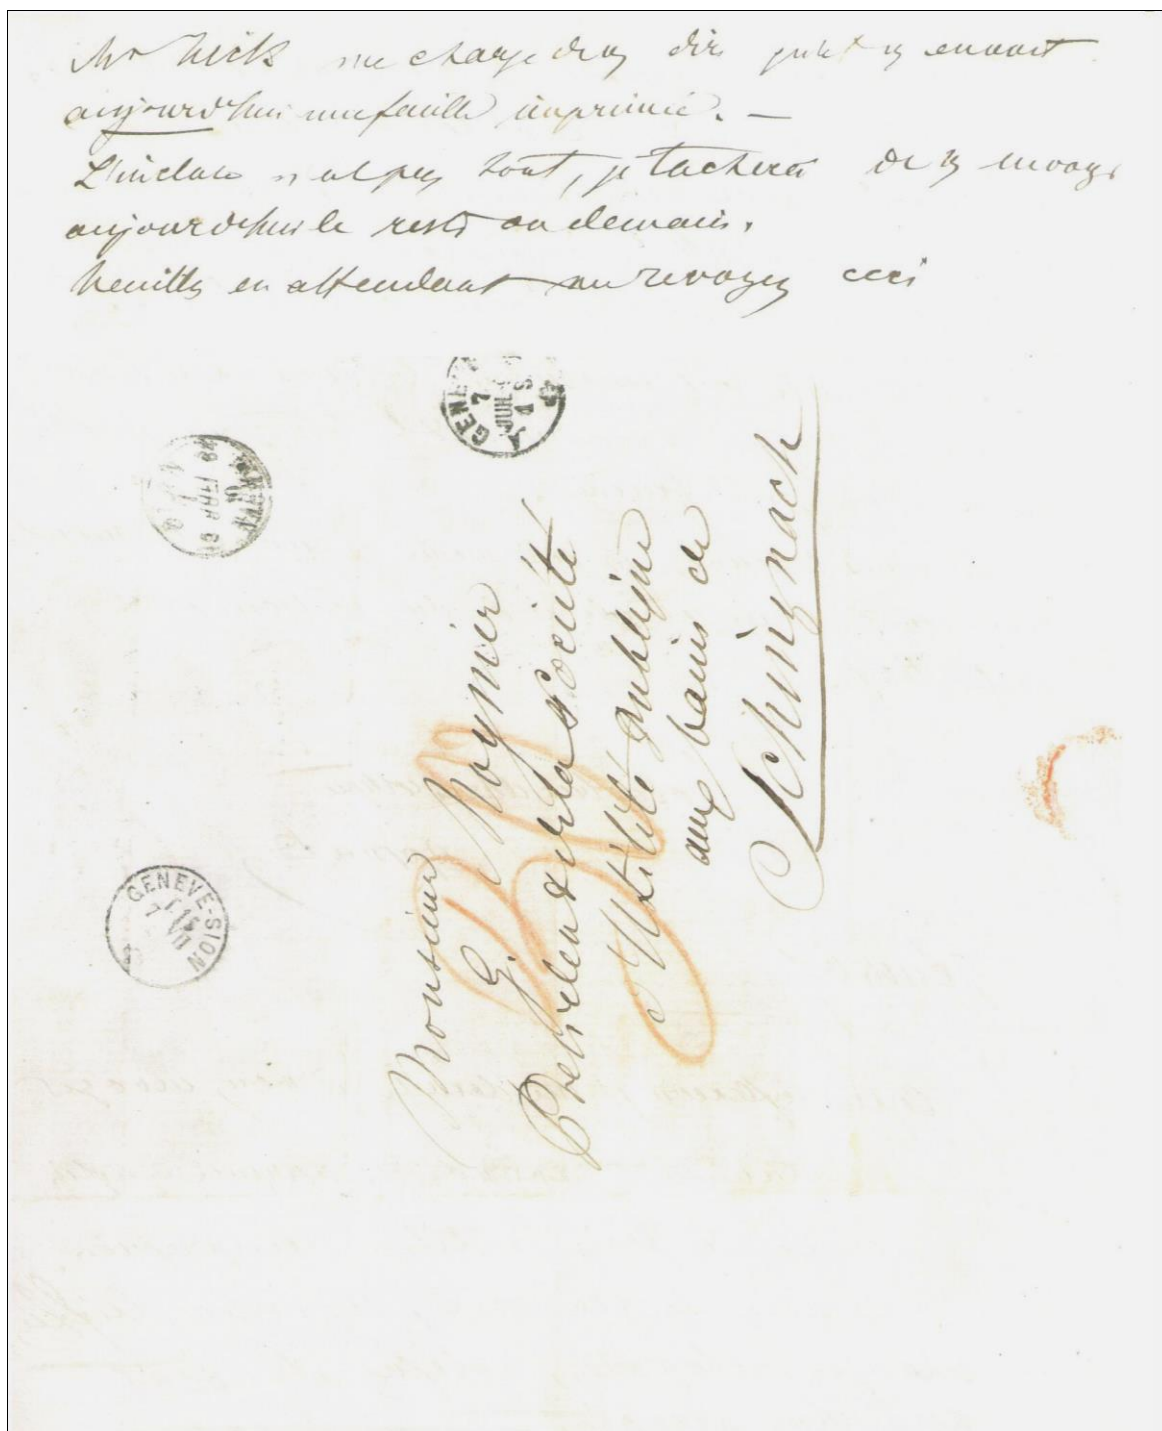 Mr Fick me charge de vs dire qu'il vs envoit
aujourd'hui une feuille imprimée. —
L'incluse n'est pas tout, je tacherai de vs envoyer
aujourd'hui le reste ou demain.
Veuillez en attendant me revoyez ceci
GENEV
7
JUIL
1 S
GENEVE-SION
7 VII
Monsieur
G. Moynier
Président de la Société
d'Utilité publique
aux bains de
Schinznach